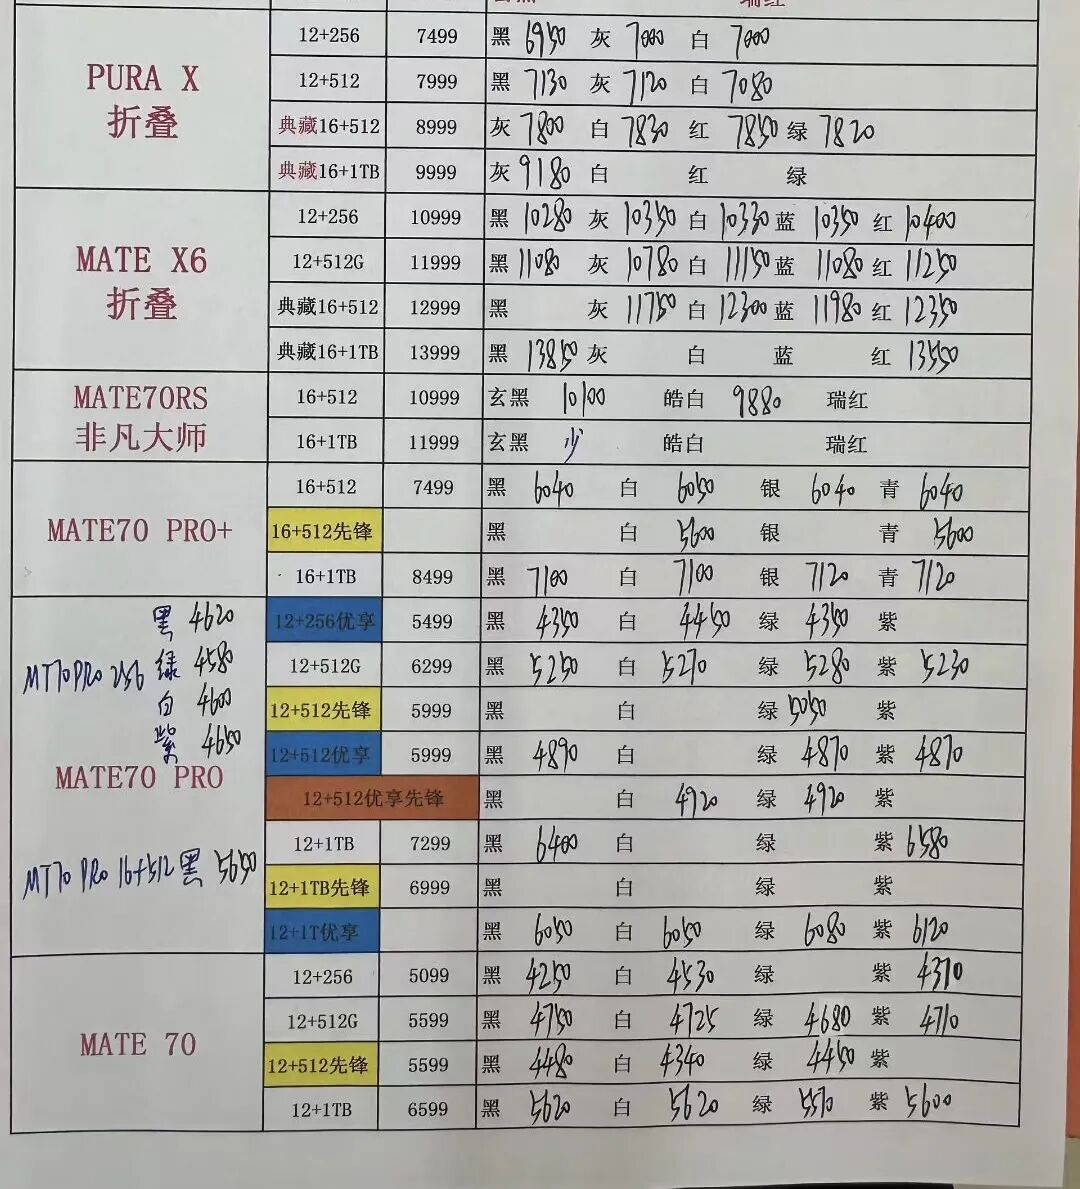 玄黑 瑞红
PURA X
折叠
12+256 7499 黑 6950 灰 7000 白 7000
12+512 7999 黑 7130 灰 7120 白 7080
典藏16+512 8999 灰 7800 白 7830 红 7850 绿 7820
典藏16+1TB 9999 灰 9180 白 红 绿
MATE X6
折叠
12+256 10999 黑 10280 灰 10350 白 10330 蓝 10350 红 10400
12+512G 11999 黑 11080 灰 10780 白 11150 蓝 11080 红 11250
典藏16+512 12999 黑 灰 11750 白 12300 蓝 11980 红 12350
典藏16+1TB 13999 黑 13850 灰 白 蓝 红 13550
MATE70RS
非凡大师
16+512 10999 玄黑 10100 皓白 9880 瑞红
16+1TB 11999 玄黑 少 皓白 瑞红
MATE70 PRO+
16+512 7499 黑 6040 白 6050 银 6040 青 6040
16+512先锋 黑 白 5600 银 青 5600
16+1TB 8499 黑 7100 白 7100 银 7120 青 7120
黑 4620
MT70PRO 256 绿 4580
白 4600
紫 4650
MATE70 PRO
MT70 PRO 16+512 黑 5650
12+256优享 5499 黑 4350 白 4450 绿 4350 紫
12+512G 6299 黑 5250 白 5270 绿 5280 紫 5230
12+512先锋 5999 黑 白 绿 5050 紫
12+512优享 5999 黑 4890 白 绿 4870 紫 4870
12+512优享先锋 黑 白 4920 绿 4920 紫
12+1TB 7299 黑 6400 白 绿 紫 6580
12+1TB先锋 6999 黑 白 绿 紫
12+1T优享 黑 6050 白 6050 绿 6080 紫 6120
MATE 70
12+256 5099 黑 4250 白 4530 绿 紫 4370
12+512G 5599 黑 4750 白 4725 绿 4680 紫 4710
12+512先锋 5599 黑 4480 白 4340 绿 4450 紫
12+1TB 6599 黑 5620 白 5620 绿 5570 紫 5600